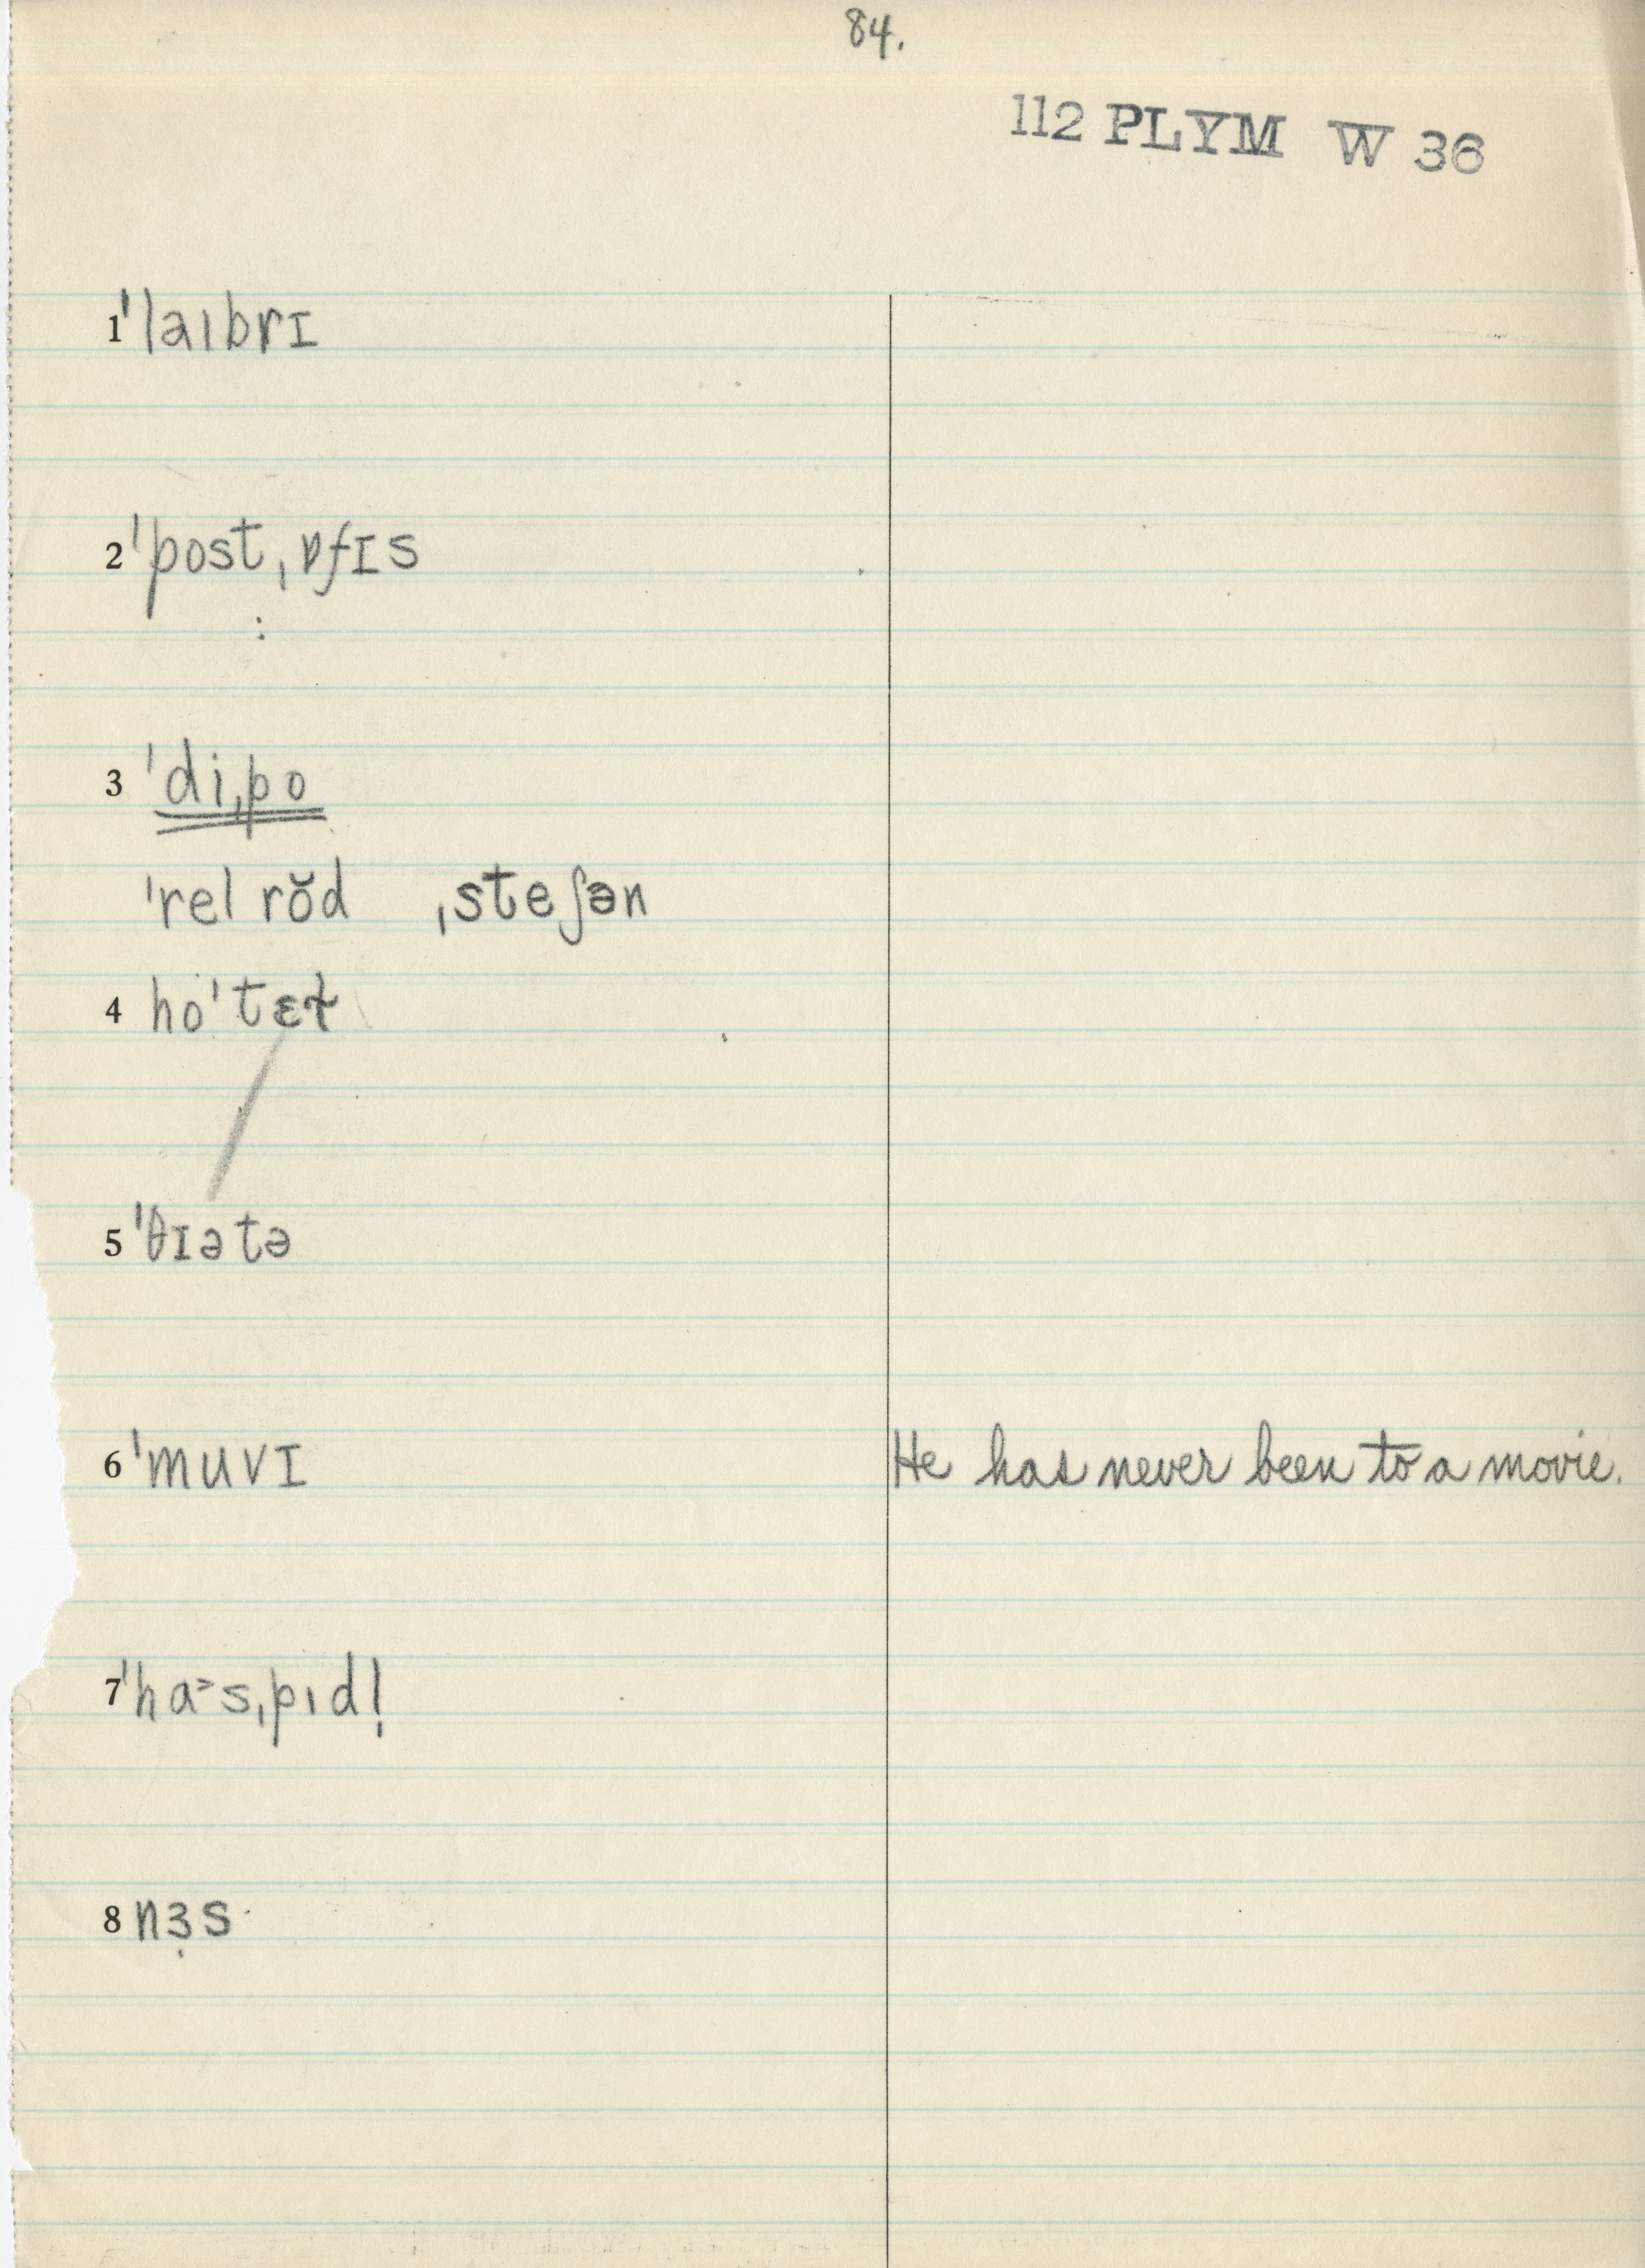 84.
112 PLYM W 36
1 ˈlaɪbrɪ
2 ˈpostˌɒfɪs
:
3 ˈdiˌpo
ˈrel rŏd ˌsteʃən
4 hoˈtɛɫ
5 ˈθɪətə
6 ˈmuvɪ He has never been to a movie.
7 ˈha˃sˌpɪdl̩
8 nɜ̣s